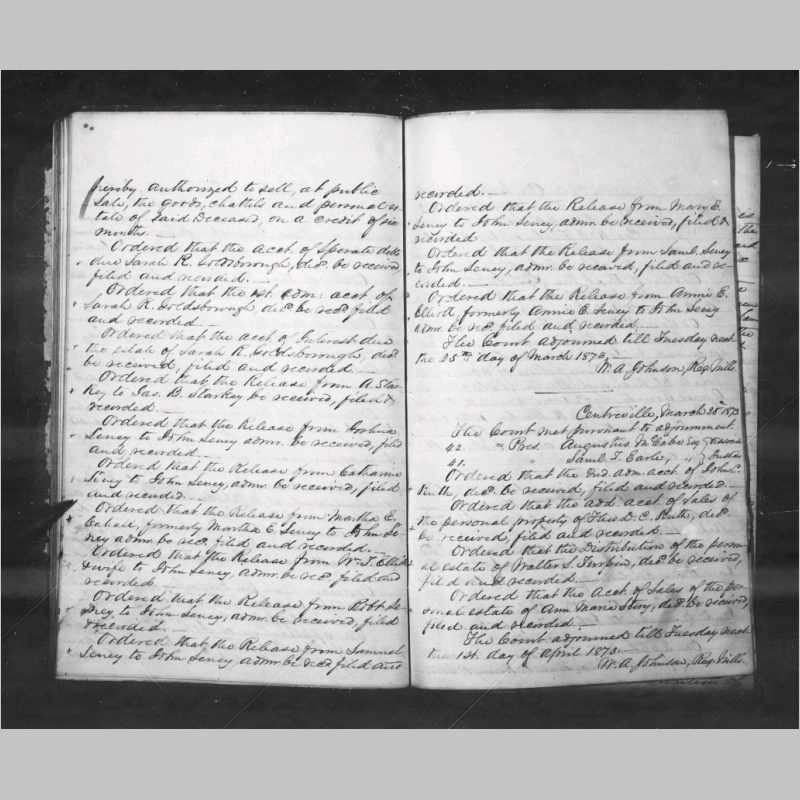 hereby authorized to sell, at public
Sale, the goods, chattels and personal es-
tate of said Deceased, on a credit of six
months. —
Ordered that the acct. of Sperate debts
due Sarah R. Goldsborough, decd. be received,
filed and recorded. —
Ordered that the 1st. adm. acct. of
Sarah R. Goldsborough decd. be recd. filed
and recorded —
Ordered that the acct of Interest due
the estate of Sarah R. Goldsborough, decd.
be received, filed and recorded. —
Ordered that the Release from A. Star-
key to Jas. B. Starkey be received, filed &
recorded. —
Ordered that the Release from Joshua
Seney to John Seney admr. be received, filed
and recorded. —
Ordered that the Release from Catharine
Seney to John Seney, admr. be received, filed
and recorded. —
Ordered that the Release from Martha E.
formerly Martha E. Seney to John Se-
ney admr. be recd. filed and recorded. —
Ordered that the Release from W. T.
& wife to John Seney, admr. be recd filed and
recorded
Ordered that the Release from Robt. Se-
ney to John Seney, admr. be received, filed
& recorded. —
Ordered that the Release from Samuel
Seney to John Seney admr. be recd filed and
recorded. —
Ordered that the Release from Mary E.
Seney to John Seney, admr. be received, filed &
recorded
Ordered that the Release from Saml. Seney
to John Seney, admr. be received, filed and re-
corded. —
Ordered that the Release from Annie E.
formerly Annie E. Seney to John Seney
admr. be recd. filed and recorded. —
The Court adjourned till Tuesday next
the 25th day of March 1873.
W. A. Johnson, Reg. Wills.
Centreville, March 25th 1873
The Court met pursuant to adjournment
42. " Pres. Augustus McCabe Esq
41. " Saml. T. Earle, "
Ordered that the 2nd. adm. acct. of John C.
Ruth, decd. be received, filed and recorded. —
Ordered that the add. acct. of sales of
the personal property of Theo. D. C. Ruth, decd.
be received, filed and recorded. —
Ordered that the Distribution of the person-
al estate of Walter S. Turpin, decd. be received,
filed and recorded. —
Ordered that the Acct. of Sales of the per-
sonal estate of Ann Maria decd. be received,
filed and recorded. —
The Court adjourned till Tuesday next
the 1st. day of April 1873. —
W. A. Johnson, Reg. Wills.